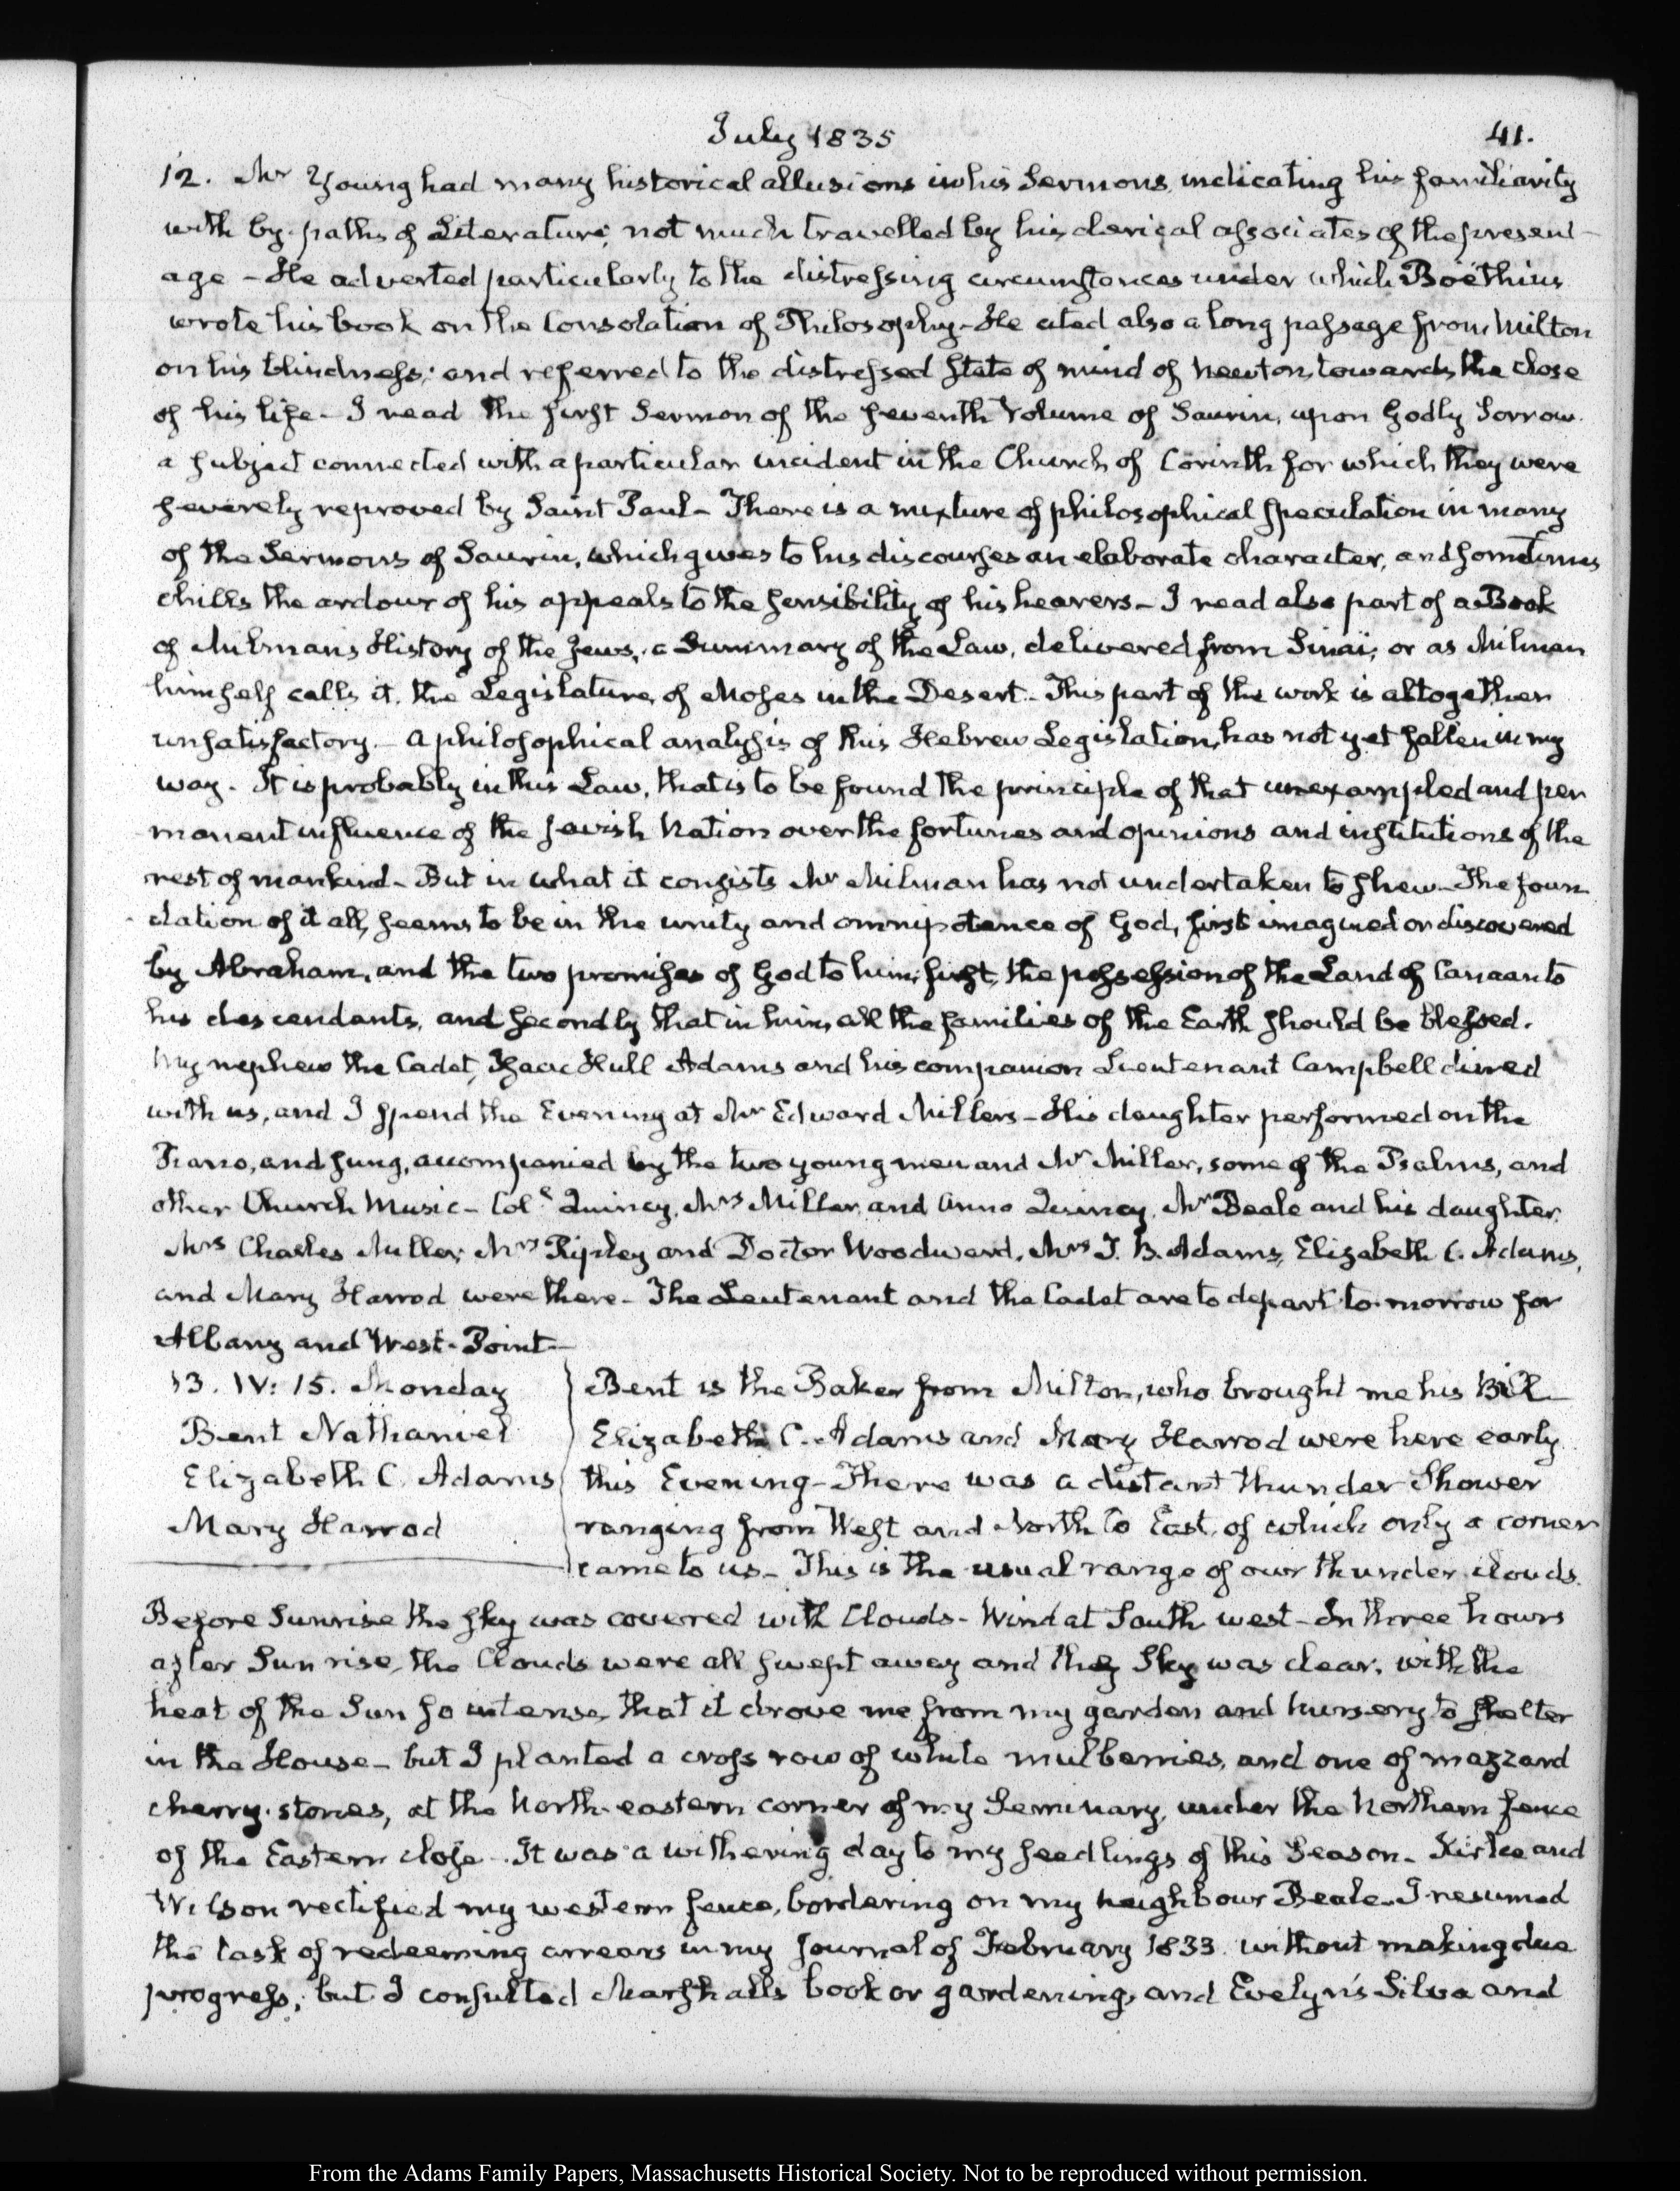 July 1835
41.
12. Mr Young had many historical allusions in his Sermons, indicating his familiarity
with by-paths of Literature, not much travelled by his clerical associates of the present
age – He adverted particularly to the distressing circumstances under which Boëthius
wrote his book on the Consolation of Philosophy – He cited also a long passage from Milton
on his blindness; and referred to the distressed State of mind of Newton, towards the close
of his life – I read the first Sermon of the seventh Volume of Saurin, upon Godly Sorrow.
a subject connected with a particular incident in the Church of Corinth for which they were
severely reproved by Saint Paul – There is a mixture of philosophical speculation in many
of the Sermons of Saurin, which gives to his discourses an elaborate character, and sometimes
chills the ardour of his appeals to the sensibility of his hearers – I read also part of a Book
of Milmans History of the Jews, a Summary of the Law, delivered from Sinai; or as Milman
himself calls it, the Legislature, of Moses in the Desert – This part of the work is altogether
unsatisfactory – a philosophical analysis of this Hebrew Legislation, has not yet fallen in my
way. It is probably in this Law, that is to be found the principle of that unexampled and per
manent influence of the Jewish Nation over the fortunes and opinions and institutions of the
rest of mankind – But in what it consists Mr Milman has not undertaken to shew – The foun
dation of it all, seems to be in the unity and omnipotence of God, first imagined or discovered
by Abraham, and the two promises of God to him, first, the possession of the Land of Canaan to
his descendants, and secondly that in him, all the families of the Earth should be blessed.
My nephew the Cadet, Isaac Hull Adams and his companion Lieutenant Campbell dined
with us, and I spend the Evening at Mr Edward Millers – His daughter performed on the
Piano, and sung, accompanied by the two young men and Mr Miller, some of the Psalms, and
other Church Music – Col. Quincy, Mrs Miller and Anna Quincy, Mr Beale and his daughter,
Mrs Charles Miller, Mrs Ripley and Doctor Woodward, Mrs T. B. Adams, Elizabeth C. Adams,
and Mary Harrod were there – The Leutenant and the Cadet are to depart to-morrow for
Albany and West-Point –
13. IV: 15. Monday
Bent Nathaniel
Elizabeth C. Adams
Mary Harrod
Bent is the Baker from Milton, who brought me his Bill
Elizabeth C. Adams and Mary Harrod were here early
this Evening – There was a distant thunder Shower
ranging from West and North to East, of which only a corner
came to us – This is the usual range of our thunder clouds.
Before Sunrise the sky was covered with Clouds – Wind at South west – In three hours
after Sun rise, the Clouds were all swept away and they Sky was clear, with the
heat of the Sun so intense, that it drove me from my garden and nursery to shelter
in the House – but I planted a cross row of white mulberries, and one of mazzard
cherry-stones, at the North-eastern corner of my Seminary, under the Northern fence
of the Eastern close – It was a withering day to my seedlings of this Season – Kirtee and
Wilson rectified my western fence, bordering on my neighbour Beale – I resumed
the task of redeeming arrears in my Journal of February 1833 without making due
progress; but I consulted Marshalls book or gardening, and Evelyn's Silva and
From the Adams Family Papers, Massachusetts Historical Society. Not to be reproduced without permission.